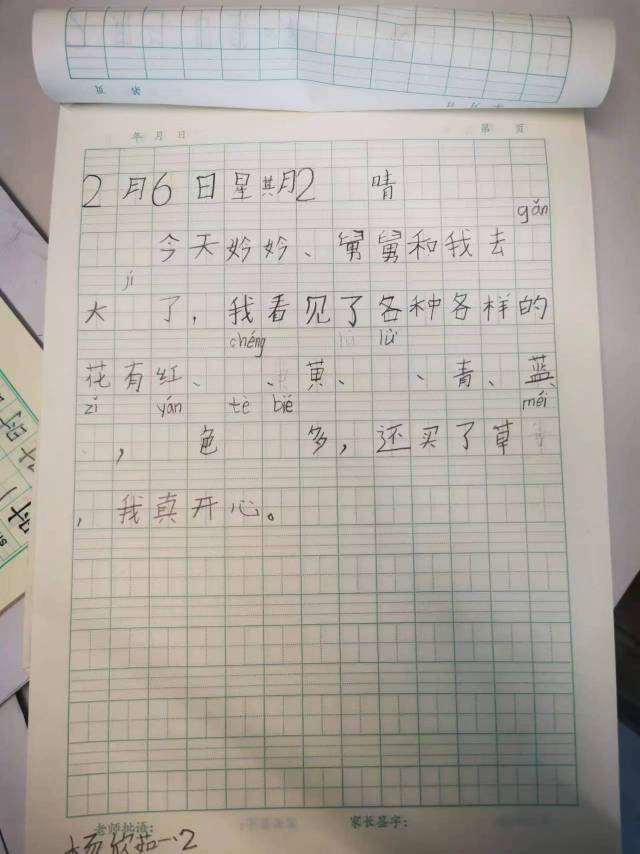 年 月 日 第 页
2月6日星期2 晴
gǎn
今天妗妗、舅舅和我去
jí
大 了,我看见了各种各样的
chéng lǜ
花有红、 、黄、 、青、蓝、
zǐ yán tè bié méi
, 色 多,还买了草
,我真开心。
老师批语: 家长签字:
杨欣茹一、2